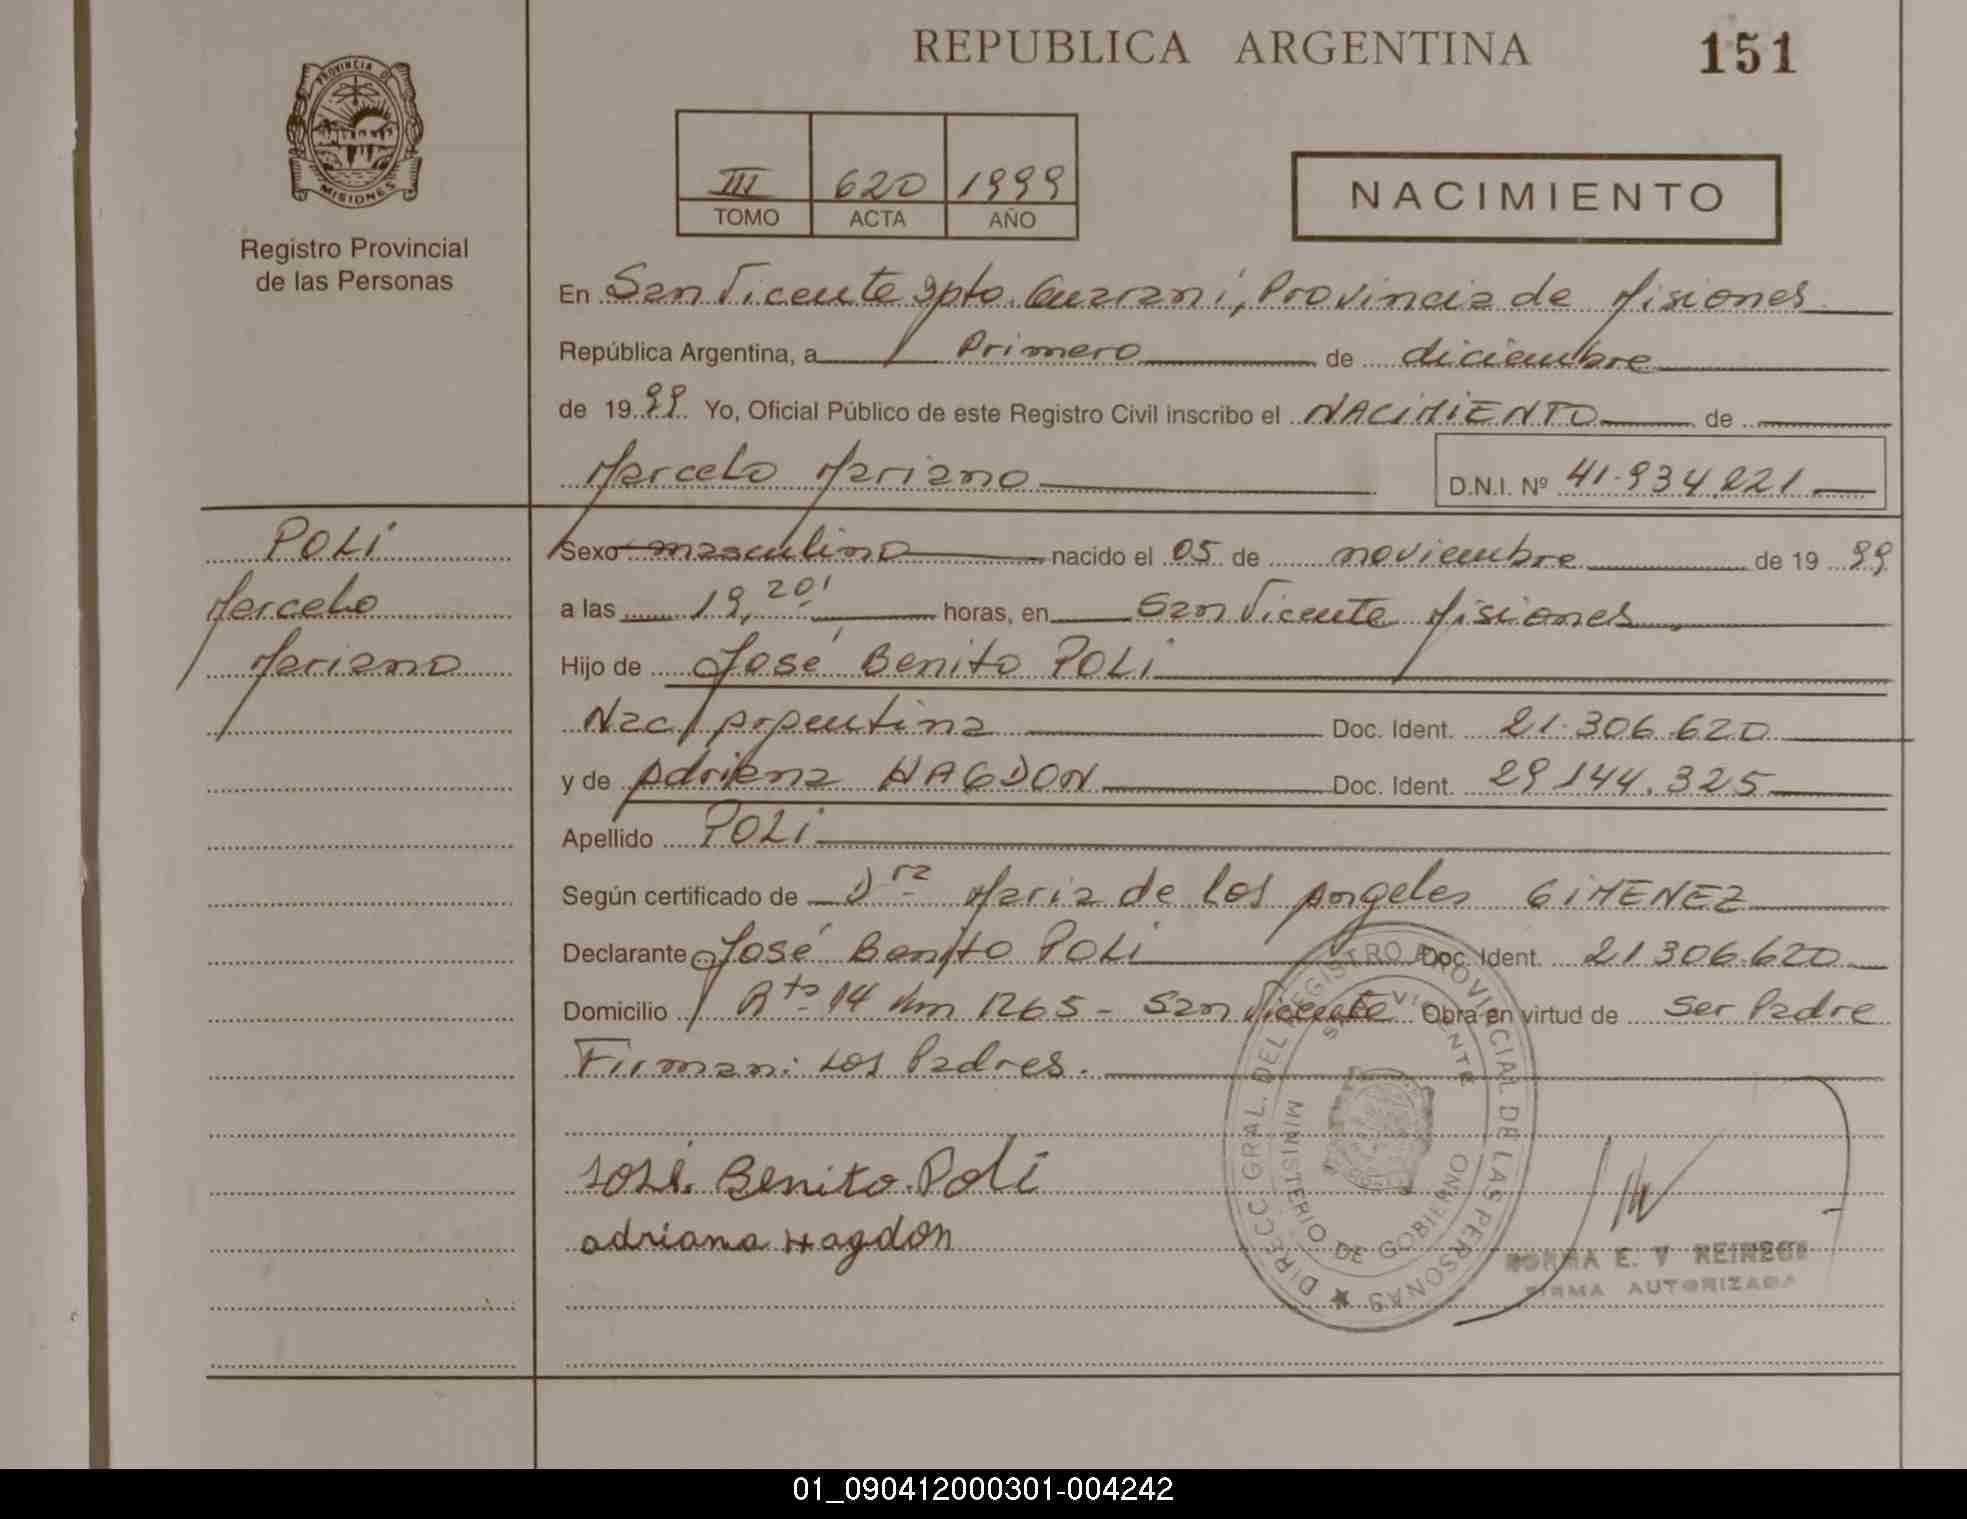 REPUBLICA ARGENTINA
151
PROVINCIA DE
MISIONES
Registro Provincial
de las Personas
III 620 1999
TOMO ACTA AÑO
NACIMIENTO
En San Vicente Dpto. Guaraní, Provincia de Misiones
República Argentina, a Primero de diciembre
de 1999 Yo, Oficial Público de este Registro Civil inscribo el NACIMIENTO de
Marcelo Mariano D.N.I. Nº 41.934.221
POLI
Marcelo
Mariano
Sexo masculino nacido el 05 de noviembre de 1999
a las 19,20' horas, en San Vicente Misiones
Hijo de José Benito POLI
Nac Argentina Doc. Ident. 21.306.620
y de Adriana HAGDON Doc. Ident. 29.144.325
Apellido POLI
Según certificado de Dra Maria de los Angeles GIMENEZ
Declarante José Benito POLI Doc. Ident. 21306.620
Domicilio Rta 14 Km 1265 - San Vicente Obra en virtud de Ser Padre
Firman: Los Padres.
José Benito Poli
adriana Hagdon
DIRECC. GRAL. DEL REGISTRO PROVINCIAL DE LAS PERSONAS
SAN VICENTE
MINISTERIO DE GOBIERNO
NORMA E. V
FIRMA AUTORIZADA
01_090412000301-004242